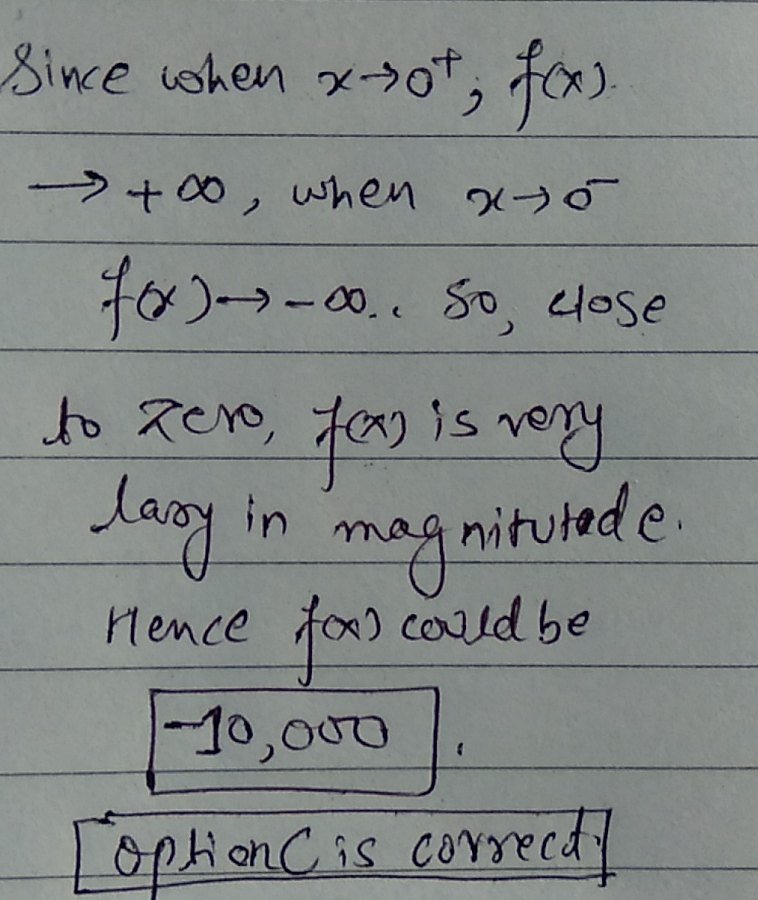 Since when x→0⁺, f(x)
→ +∞, when x→0⁻
f(x)→ -∞. So, close
to zero, f(x) is very
lary in magnitutade.
Hence f(x) could be
-10,000.
option C is correct.